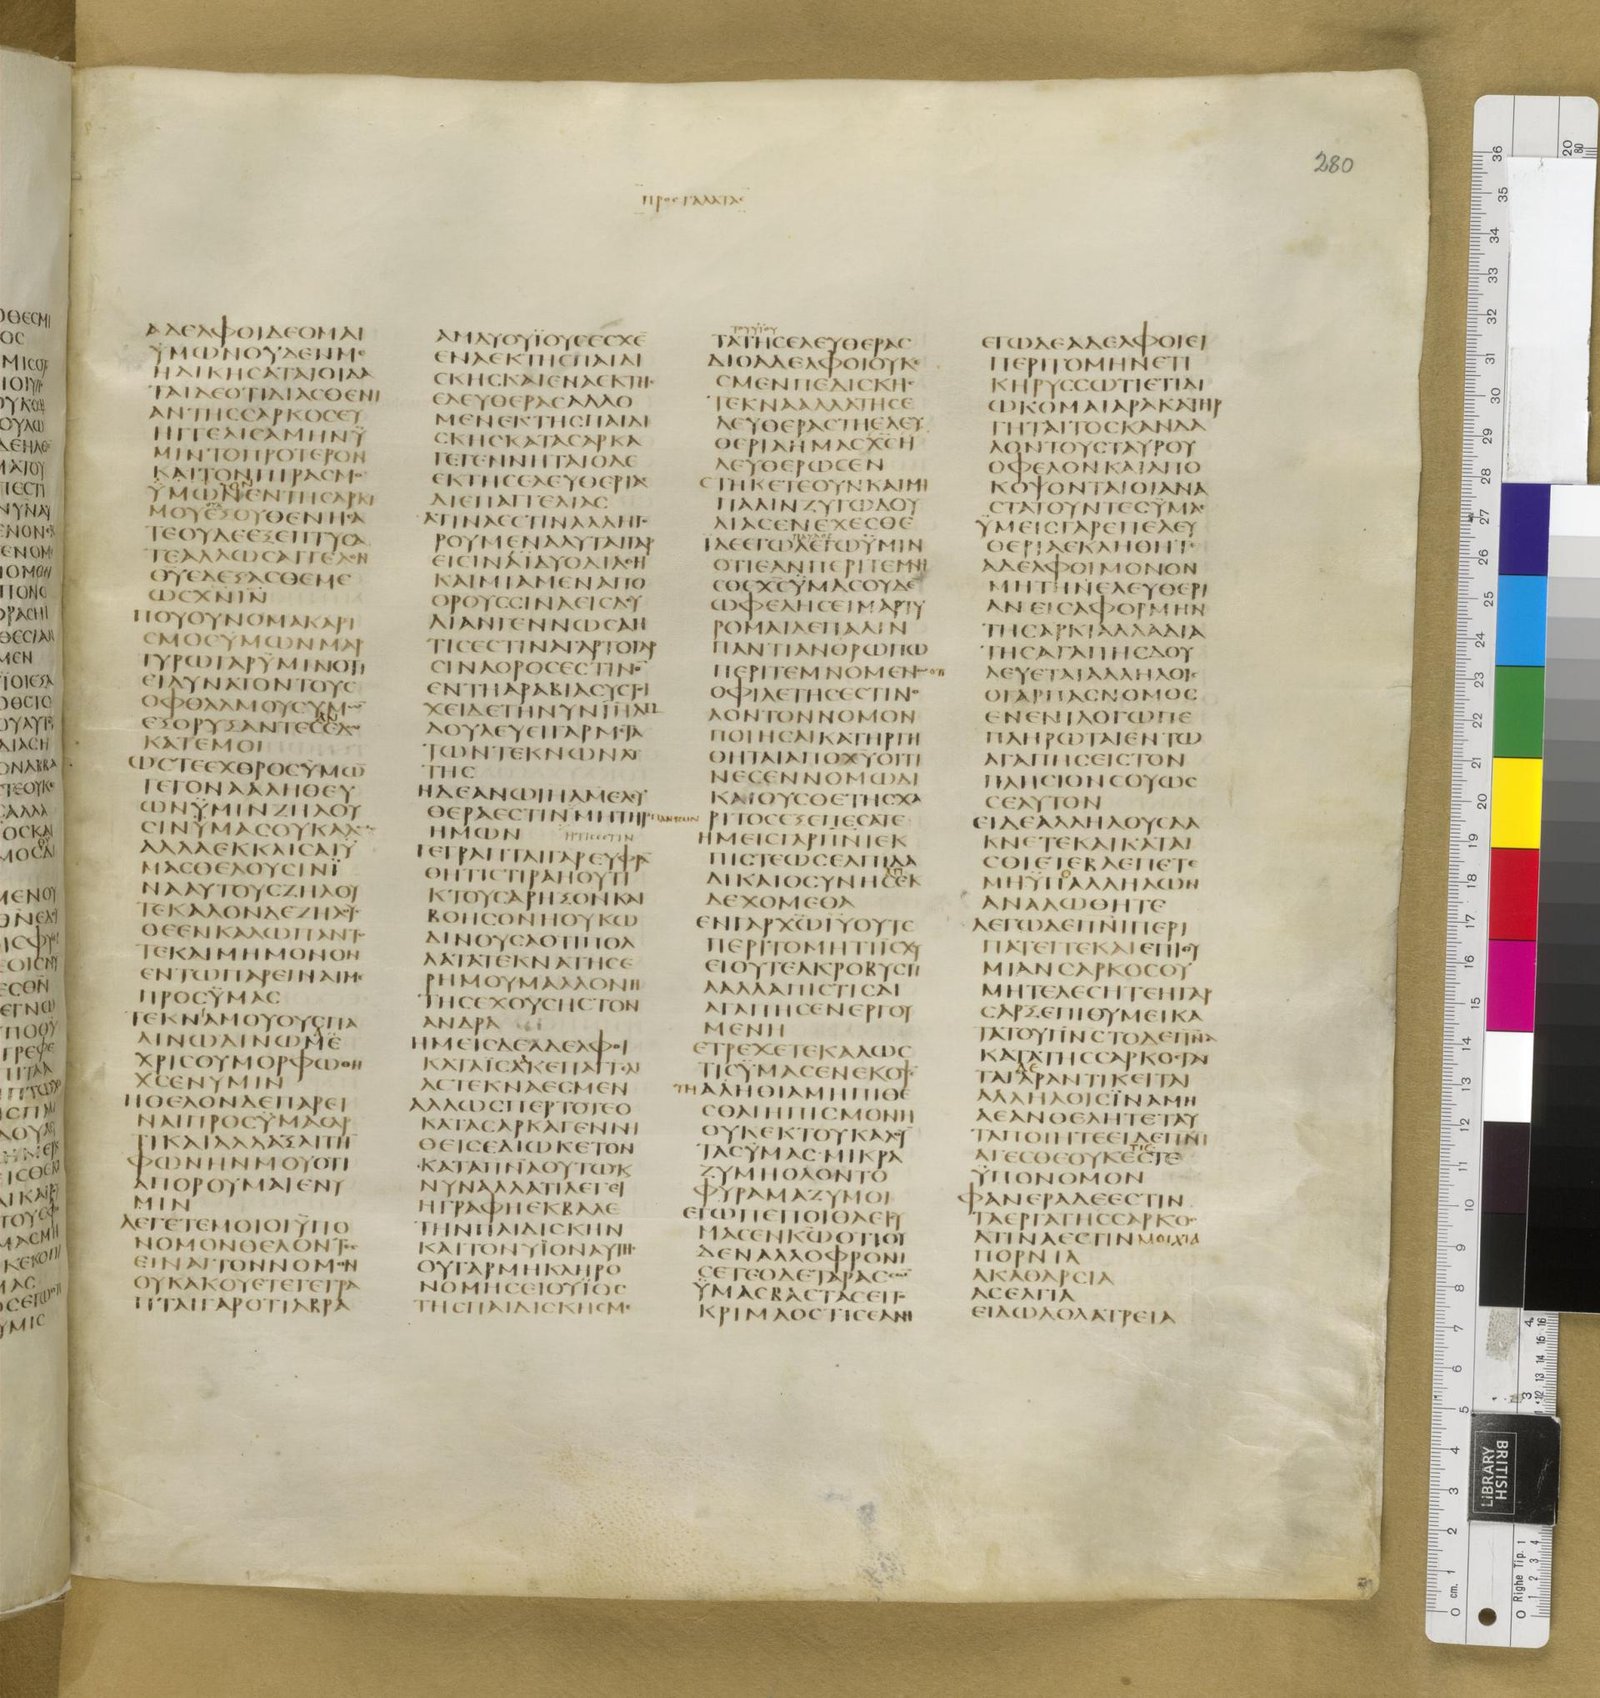 ΠΡΟC ΓΑΛΑΤΑC
280
ΑΔΕΛΦΟΙΔΕΟΜΑΙ
ΫΜΩΝΟΥΔΕΝΜΕ
ΗΔΙΚΗCΑΤΑΙΟΙΔΑ
ΤΑΙΔΕΟΤΙΔΙΑCΘΕΝΙ
ΑΝΤΗCCΑΡΚΟCΕΥ
ΗΓΓΕΛΙCΑΜΗΝΫ
ΜΙΝΤΟΠΡΟΤΕΡΟΝ
ΚΑΙΤΟΝΠΙΡΑCΜΟ
ΫΜΩΝΕΝΤΗCΑΡΚΙ
ΜΟΥΕΞΟΥΘΕΝΗCΑ
ΤΕΟΥΔΕΕΞΕΠΤΥCΑ
ΤΕΑΛΛΩCΑΓΓΕΛΟΝ
ΘΥΕΔΕΞΑCΘΕΜΕ
ΩCΧΝΙΝ
ΠΟΥΟΥΝΟΜΑΚΑΡΙ
CΜΟCΫΜΩΝΜΑΡ
ΤΥΡΩΓΑΡΫΜΙΝΟΤΙ
ΕΙΔΥΝΑΤΟΝΤΟΥC
ΟΦΘΑΛΜΟΥCΫΜΩΝ
ΕΞΟΡΥΞΑΝΤΕCΕΔΩ
ΚΑΤΕΜΟΙ
ΩCΤΕΕΧΘΡΟCΫΜΩ
ΓΕΓΟΝΑΑΛΗΘΕΥ
ΩΝΫΜΙΝΖΗΛΟΥ
CΙΝΫΜΑCΟΥΚΑΛΩC
ΑΛΛΑΕΚΚΛΙCΑΙΫ
ΜΑCΘΕΛΟΥCΙΝΪ
ΝΑΑΥΤΟΥCΖΗΛΟΥ
ΤΕΚΑΛΟΝΔΕΖΗΛΟΥ
CΘΕΕΝΚΑΛΩΠΑΝΤΟ
ΤΕΚΑΙΜΗΜΟΝΟΝ
ΕΝΤΩΠΑΡΕΙΝΑΙΜΕ
ΠΡΟCΫΜΑC
ΤΕΚΝΑΜΟΥΟΥCΠΑ
ΛΙΝΩΔΙΝΩΜΕ
ΧΡΙCΟΥΜΟΡΦΩΘΗ
ΧCΕΝΥΜΙΝ
ΗΘΕΛΟΝΔΕΠΑΡΕΙ
ΝΑΙΠΡΟCΫΜΑCΑΡ
ΤΙΚΑΙΑΛΛΑΞΑΙΤΗΝ
ΦΩΝΗΝΜΟΥΟΤΙ
ΑΠΟΡΟΥΜΑΙΕΝΥ
ΜΙΝ
ΛΕΓΕΤΕΜΟΙΟΙΫΠΟ
ΝΟΜΟΝΘΕΛΟΝΤΕC
ΕΙΝΑΙΤΟΝΝΟΜΟΝ
ΟΥΚΑΚΟΥΕΤΕΓΕΓΡΑ
ΠΤΑΙΓΑΡΟΤΙΑΒΡΑ
ΑΜΔΥΟΥΪΟΥCΕCΧΕ
ΕΝΑΕΚΤΗCΠΑΙΔΙ
CΚΗCΚΑΙΕΝΑΕΚΤΗC
ΕΛΕΥΘΕΡΑCΑΛΛΟ
ΜΕΝΕΚΤΗCΠΑΙΔΙ
CΚΗCΚΑΤΑCΑΡΚΑ
ΓΕΓΕΝΝΗΤΑΙΟΔΕ
ΕΚΤΗCΕΛΕΥΘΕΡΙΑC
ΔΙΕΠΑΓΓΕΛΙΑC
ΑΤΙΝΑΕCΤΙΝΑΛΛΗΓΟ
ΡΟΥΜΕΝΑΑΥΤΑΙΓΑΡ
ΕΙCΙΝΑΪΔΥΟΔΙΑΘΗ
ΚΑΙΜΙΑΜΕΝΑΠΟ
ΟΡΟΥCCΙΝΑΕΙCΔΟΥ
ΛΙΑΝΓΕΝΝΩCΑΗ
ΤΙCΕCΤΙΝΑΓΑΡΤΟΓΑΡ
CΙΝΑΟΡΟCΕCΤΙΝ
ΕΝΤΗΑΡΑΒΙΑCΥCΤΟΙ
ΧΕΙΔΕΤΗΝΥΝΙΗΛΜ
ΔΟΥΛΕΥΕΙΓΑΡΜΕΤΑ
ΤΩΝΤΕΚΝΩΝΑΥ
ΤΗC
ΗΔΕΑΝΩΙΗΛΜΕΛΕΥ
ΘΕΡΑΕCΤΙΝΜΗΤΗΡΠΑΝΤΩΝ
ΗΜΩΝ ΗΤΙCΕCΤΙΝ
ΓΕΓΡΑΠΤΑΙΓΑΡΕΥΦΡΑ
ΘΗΤΙCΤΙΡΑΗΟΥΤΙ
ΚΤΟΥCΑΡΗΞΟΝΚΑΙ
ΒΟΗCΟΝΗΟΥΚΩ
ΔΙΝΟΥCΑΟΤΙΠΟΛ
ΛΑΤΑΤΕΚΝΑΤΗCΕ
ΡΗΜΟΥΜΑΛΛΟΝΗ
ΤΗCΕΧΟΥCΗCΤΟΝ
ΑΝΔΡΑ
ΗΜΕΙCΔΕΑΔΕΛΦΟΙ
ΚΑΤΑΪCΑΚΕΠΑΓΓΕΛΙ
ΑCΤΕΚΝΑΕCΜΕΝ
ΑΛΛΩCΠΕΡΤΟΤΕΟ
ΚΑΤΑCΑΡΚΑΓΕΝΝΙ
ΘΕΙCΕΔΙΩΚΕΤΟΝ
ΚΑΤΑΠΝΑΟΥΤΩΚ
ΝΥΝΑΛΛΑΤΙΛΕΓΕΙ
ΗΓΡΑΦΗΕΚΒΑΛΕ
ΤΗΝΠΑΙΔΙCΚΗΝ
ΚΑΙΤΟΝΥΪΟΝΑΥΤΗC
ΟΥΓΑΡΜΗΚΛΗΡΟ
ΝΟΜΗCΕΙΟΥΪΟC
ΤΗCΠΑΙΔΙCΚΗCΜΕ
ΤΟΥΥΪΟΥ
ΤΑΤΗCΕΛΕΥΘΕΡΑC
ΔΙΟΑΔΕΛΦΟΙΟΥΚΕ
CΜΕΝΠΕΔΙCΚΗC
ΤΕΚΝΑΑΛΛΑΤΗCΕ
ΛΕΥΘΕΡΑCΤΗΕΛΕΥ
ΘΕΡΙΑΗΜΑCΧCΗ
ΛΕΥΘΕΡΩCΕΝ
CΤΗΚΕΤΕΟΥΝΚΑΙΜΗ
ΠΑΛΙΝΖΥΓΩΔΟΥ
ΛΙΑCΕΝΕΧΕCΘΕ
ΪΔΕΕΓΩΛΕΓΩΫΜΙΝ
ΟΤΙΕΑΝΠΕΡΙΤΕΜΝΗ
CΘΕΧCΫΜΑCΟΥΔΕ
ΩΦΕΛΗCΕΙΜΑΡΤΥ
ΡΟΜΑΙΔΕΠΑΛΙΝ
ΠΑΝΤΙΑΝΘΡΩΠΩ
ΠΕΡΙΤΕΜΝΟΜΕΝΩΟΤΙ
ΟΦΙΛΕΤΗCΕCΤΙΝΟ
ΛΟΝΤΟΝΝΟΜΟΝ
ΠΟΙΗCΑΙΚΑΤΗΡΓΗ
ΘΗΤΑΙΑΠΟΧΥΟΙΤΙ
ΝΕCΕΝΝΟΜΩΔΙ
ΚΑΙΟΥCΘΕΤΗCΧΑ
ΡΙΤΟCΕΞΕΠΕCΑΤΕ
ΗΜΕΙCΓΑΡΠΝΙΕΚ
ΠΙCΤΕΩCΕΛΠΙΔΑ
ΔΙΚΑΙΟCΥΝΗCΕΚ
ΔΕΧΟΜΕΘΑ
ΕΝΓΑΡΧΩΙΥΟΥΤΕ
ΠΕΡΙΤΟΜΗΤΙΪCΧΥ
ΕΙΟΥΤΕΑΚΡΟΒΥCΤΙ
ΑΛΛΑΠΙCΤΙCΔΙ
ΑΓΑΠΗCΕΝΕΡΓΟΥ
ΜΕΝΗ
ΕΤΡΕΧΕΤΕΚΑΛΩC
ΤΙCΫΜΑCΕΝΕΚΟΨΕ
ΤΗΑΛΗΘΙΑΜΗΠΙΘΕ
CΘΑΙΗΠΙCΜΟΝΗ
ΟΥΚΕΚΤΟΥΚΑΛΟΥ
ΤΑCΫΜΑCΜΙΚΡΑ
ΖΥΜΗΟΛΟΝΤΟ
ΦΥΡΑΜΑΖΥΜΟΙ
ΕΓΩΠΕΠΟΙΘΑΕΙCΫ
ΜΑCΕΝΚΩΟΤΙΟΥ
ΔΕΝΑΛΛΟΦΡΟΝΗ
CΕΤΕΟΔΕΤΑΡΑCCΩΝ
ΫΜΑCΒΑCΤΑCΕΙΤΟ
ΚΡΙΜΑΟCΤΙCΕΑΝΗ
ΕΓΩΔΕΑΔΕΛΦΟΙΕΙ
ΠΕΡΙΤΟΜΗΝΕΤΙ
ΚΗΡΥCCΩΤΙΕΤΙΔΙ
ΩΚΟΜΑΙΑΡΑΚΑΤΗΡ
ΓΗΤΑΙΤΟCΚΑΝΔΑ
ΛΟΝΤΟΥCΤΑΥΡΟΥ
ΟΦΕΛΟΝΚΑΙΑΠΟ
ΚΟΨΟΝΤΑΙΟΙΑΝΑ
CΤΑΤΟΥΝΤΕCΫΜΑC
ΫΜΕΙCΓΑΡΕΠΕΛΕΥ
ΘΕΡΙΑΕΚΛΗΘΗΤΕ
ΑΔΕΛΦΟΙΜΟΝΟΝ
ΜΗΤΗΝΕΛΕΥΘΕΡΙ
ΑΝΕΙCΑΦΟΡΜΗΝ
ΤΗCΑΡΚΙΑΛΛΑΔΙΑ
ΤΗCΑΓΑΠΗCΔΟΥ
ΛΕΥΕΤΑΙΑΛΛΗΛΟΙC
ΟΓΑΡΠΑCΝΟΜΟC
ΕΝΕΝΙΛΟΓΩΠΕ
ΠΛΗΡΩΤΑΙΕΝΤΩ
ΑΓΑΠΗCΕΙCΤΟΝ
ΠΛΗCΙΟΝCΟΥΩC
CΕΑΥΤΟΝ
ΕΙΔΕΑΛΛΗΛΟΥCΔΑ
ΚΝΕΤΕΚΑΙΚΑΤΑΙ
CΘΙΕΤΕΒΛΕΠΕΤΕ
ΜΗΫΠΑΛΛΗΛΩΝ
ΑΝΑΛΩΘΗΤΕ
ΛΕΓΩΔΕΠΝΙΠΕΡΙ
ΠΑΤΕΙΤΕΚΑΙΕΠΙΘΥ
ΜΙΑΝCΑΡΚΟCΟΥ
ΜΗΤΕΛΕCΗΤΕΗΓΑΡ
CΑΡΞΕΠΙΘΥΜΕΙΚΑ
ΤΑΤΟΥΠΝCΤΟΔΕΠΝΑ
ΚΑΤΑΤΗCCΑΡΚΟCΤΑΥ
ΤΑΓΑΡΑΝΤΙΚΕΙΤΑΙ
ΑΛΛΗΛΟΙCΪΝΑΜΗ
ΑΕΑΝΘΕΛΗΤΕΤΑΥ
ΤΑΠΟΙΗΤΕΕΙΔΕΠΝΙ
ΑΓΕCΘΕΟΥΚΕCΤΕ
ΫΠΟΝΟΜΟΝ
ΦΑΝΕΡΑΔΕΕCΤΙΝ
ΤΑΕΡΓΑΤΗCCΑΡΚΟC
ΑΤΙΝΑΕCΤΙΝΜΟΙΧΙΑ
ΠΟΡΝΙΑ
ΑΚΑΘΑΡCΙΑ
ΑCΕΛΓΙΑ
ΕΙΔΩΛΟΛΑΤΡΕΙΑ
BRITISH
LIBRARY